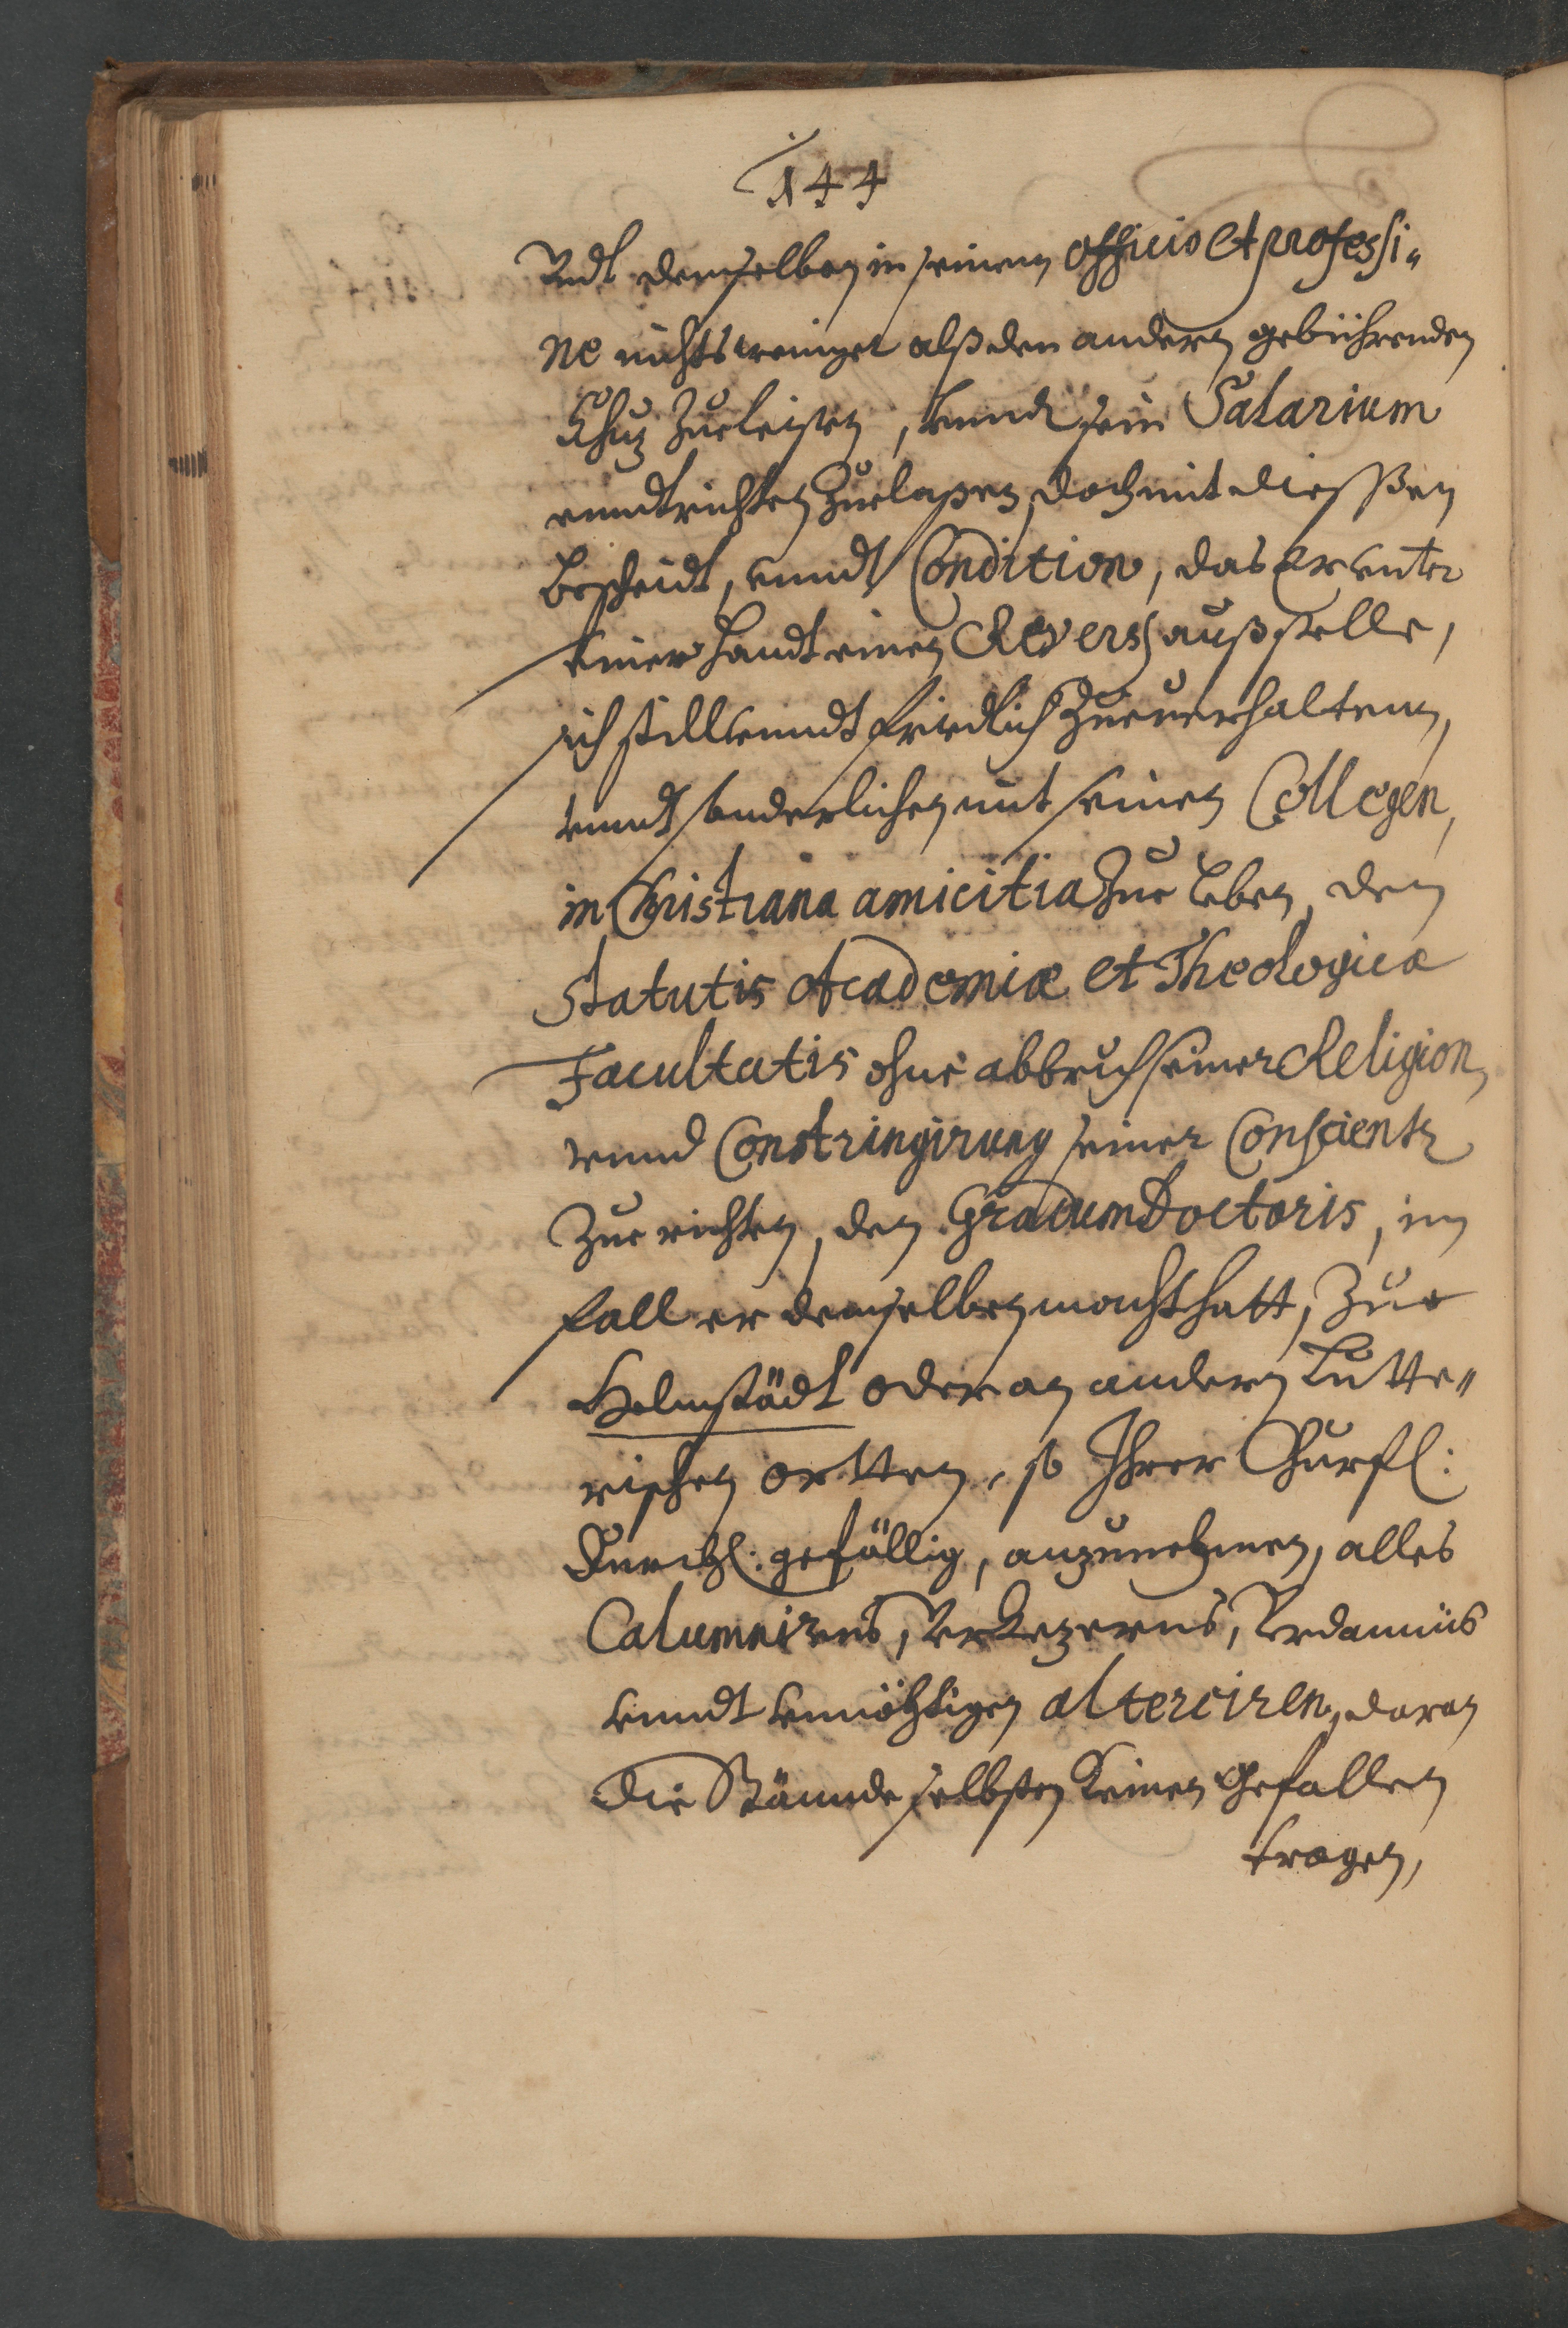 144
Vndt demselben in seinem officio et professi„
ne nichts weniger alß den andern gebührenden
Schuz zue leisten, vnndt sein Salarium
enndtrichten zue laßen, doch mit dießen
bescheidt, vnndt Condition, das er vnter
seiner handt einen Revers außstelle,
sich still vnndt friedlich zue verhaltenn,
vnndt sonderlichen mit seinen Collegen,
in Christiana amicitia zue leben, den
Statutis Academiæ et Theologicæ
Facultatis ohne abbruch seiner Religion,
vnnd Constringirung seiner Conscientz
zue richten, den Gradum Doctoris, im
fall er denselben nicht hatt, zue
Helmstädt oder an andern Lutte„
rischen ortten, so Ihrer Churfl:
Durchl: gefällig, anzunehmen, alles
Calumnirens, Verkezerens, Verdamnüs
vnndt vnnöhtigen altercirens, daran
die Stännde selbsten keinen gefallen
tragen,